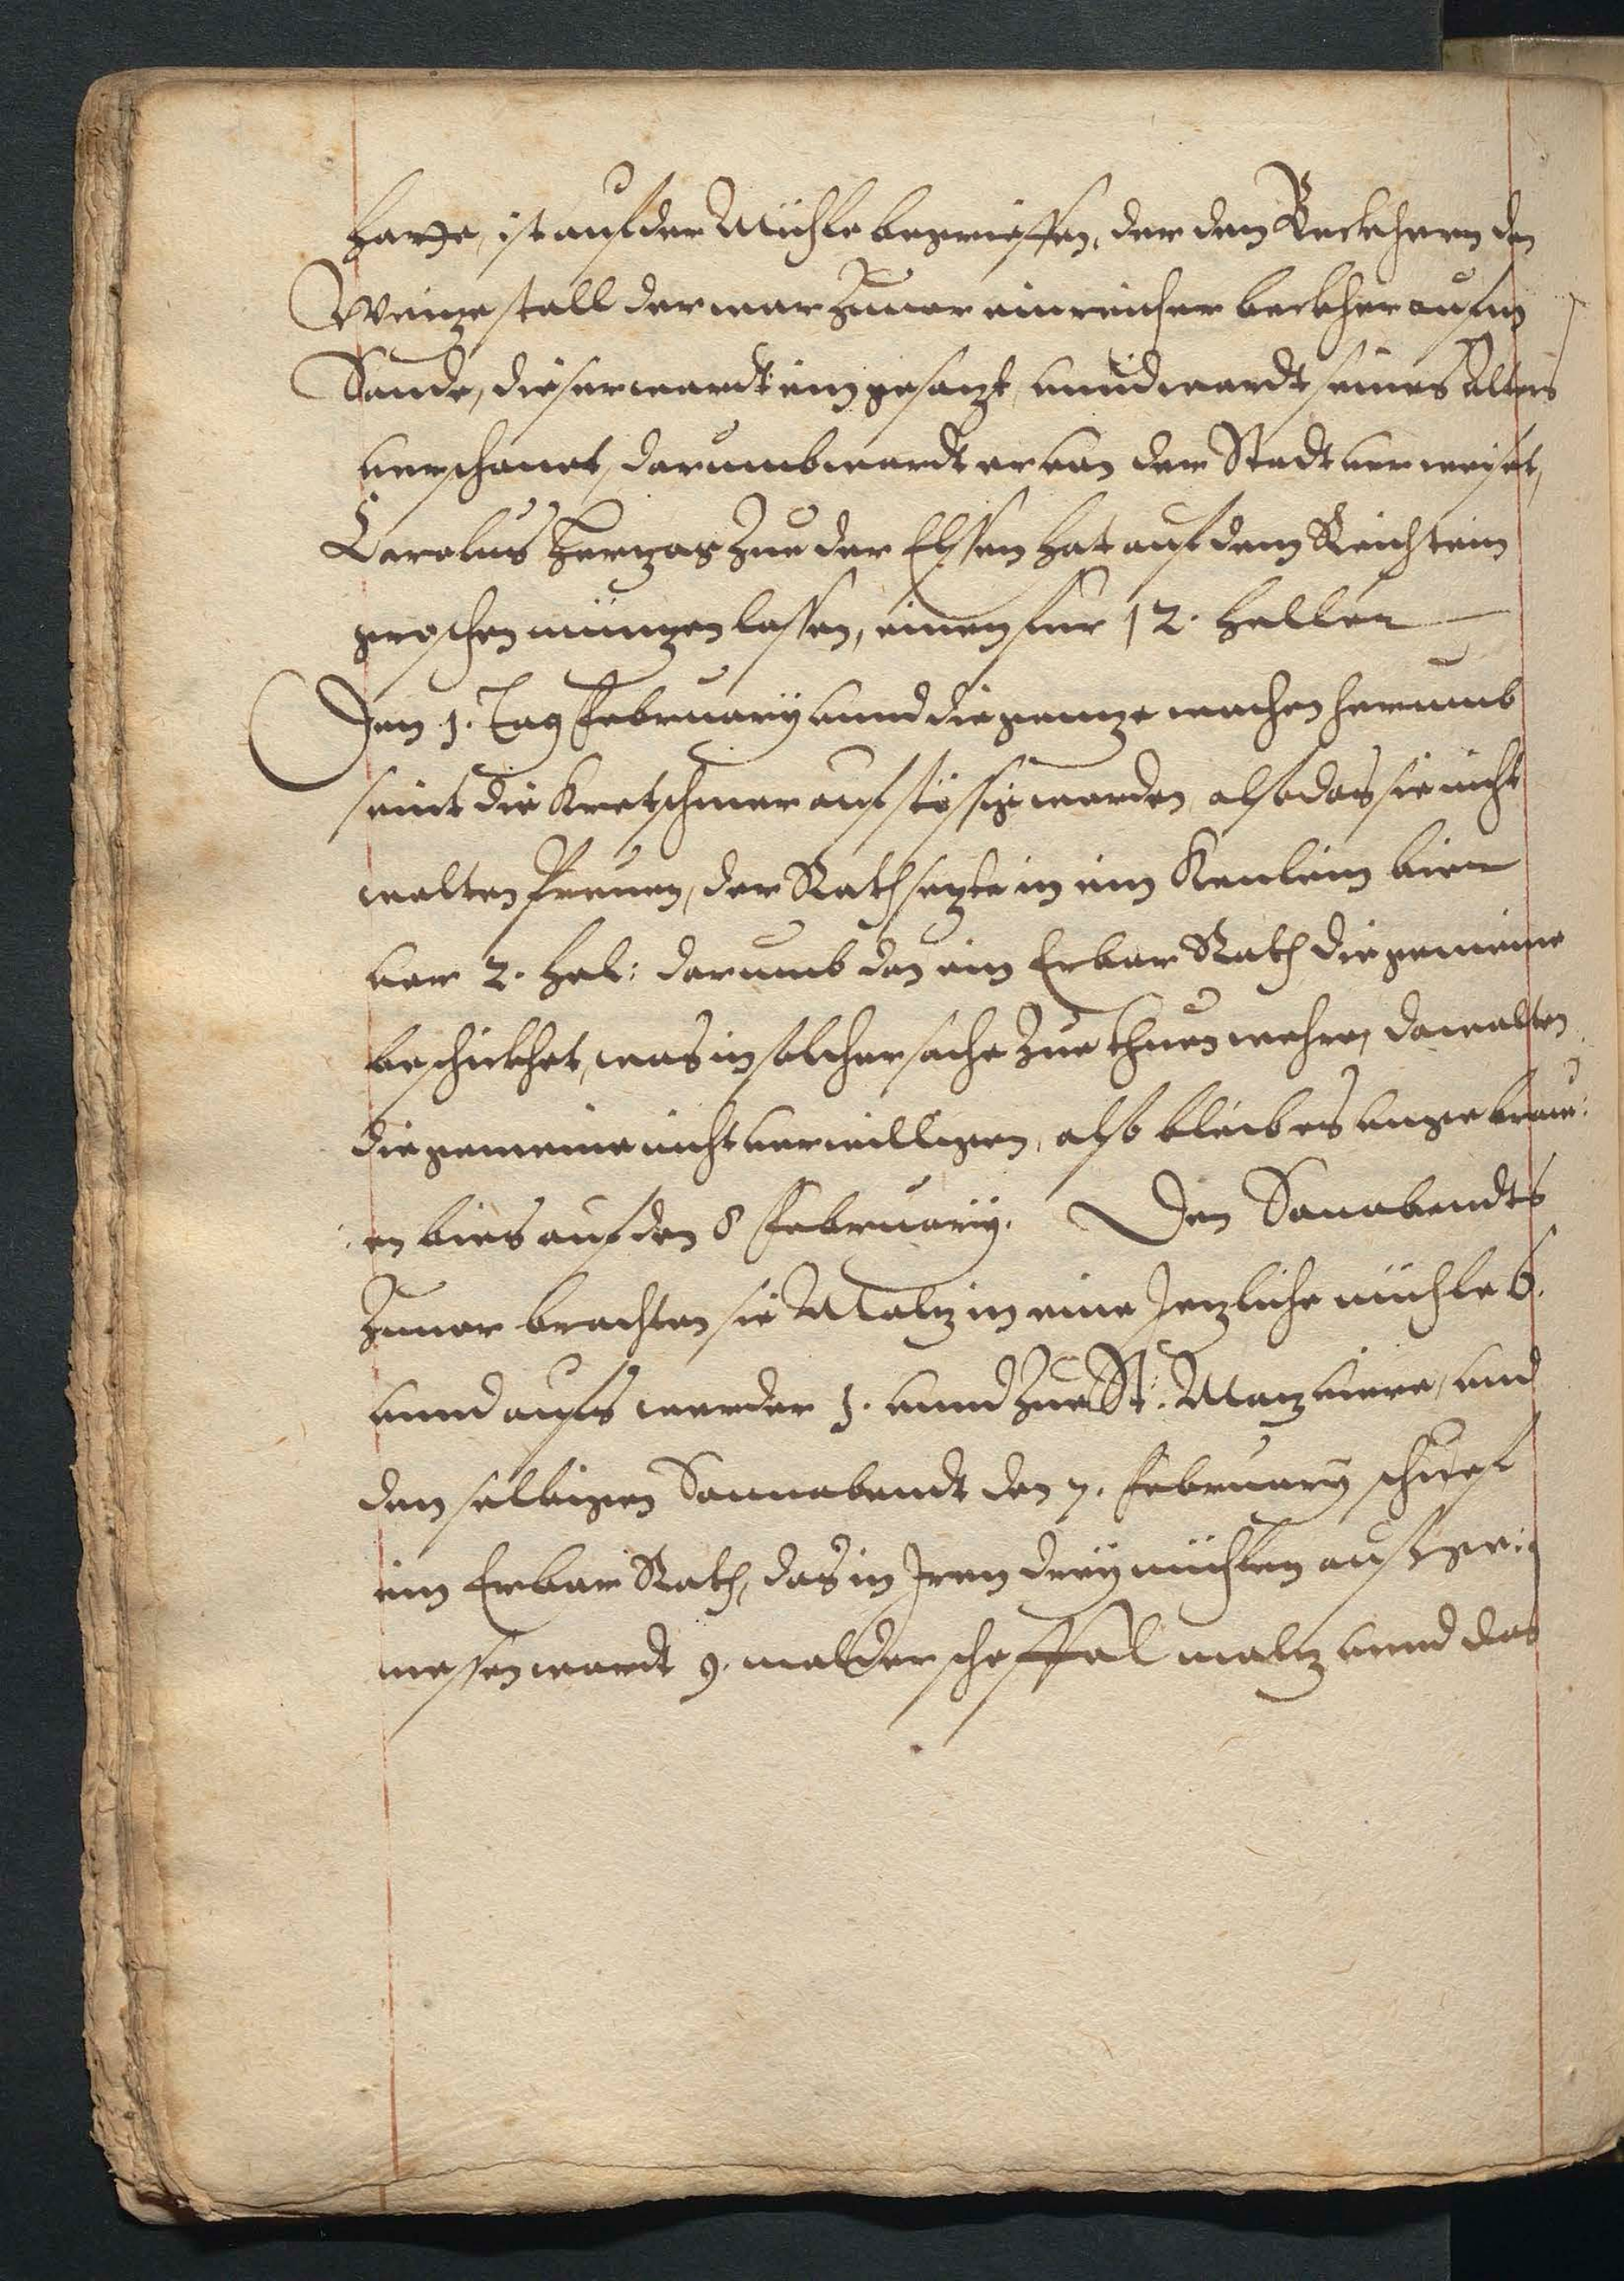 ist auf der Mühle begrieffen, der den Beckhern den
Weitze stall der war zuuor ein reicher beckher aufm
Sande, dieser wardt eingesatzt, unnd wardt seines Alters
verschonet, darumb wardt er von der Stadt verweiset,
Carolus Hertzog zue der Elssen hat auf dem Reichstein
groschen müntzen lassen, einen fur 12. Heller
Den 1. Tag February unnd die gantze wochen herumb
seint die Kretschmer aufstössig worden, also das sie nicht
wolten Preuen, der Rath setzte in ein Kenlein bier
vor 2. Hel: darumb das ein Erbar Rath die gemeine
beschickhet, was in solcher sache zue thuen wehre, da wolten
die gemeine nicht verwilligen, also bleib es ungebrau:
en bies auf den 8 February. Den Sonabendts
zuuor brachten sie Maltz in eine Jetzliche mühle 6.
unnd aufs werder 1. unnd zue St: Matz viere, und
den selbigen Sonnabendt den 7. February schuef
ein Erbar Rath, das in Iren drey mühlen aufge:
messen wardt 9. malder scheffel maltz unnd das